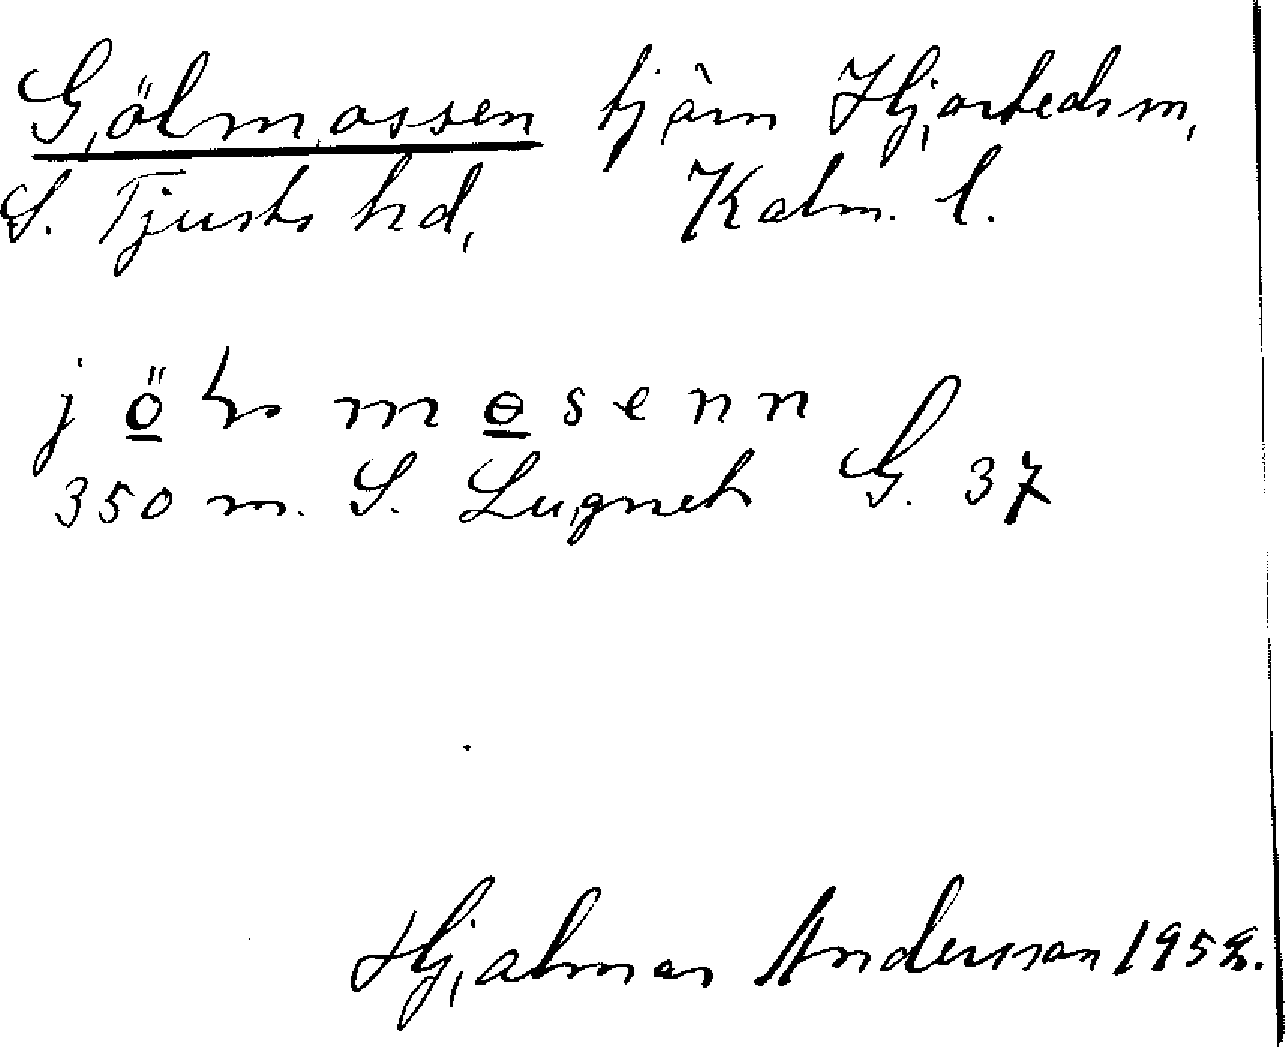 Gölmossen tjärn Hjorteds sn,
S. Tjusts hd, Kalm. l.
jöʟmɵsenn
350 m. S. Lugnet G. 37
Hjalmar Andersson 1952.